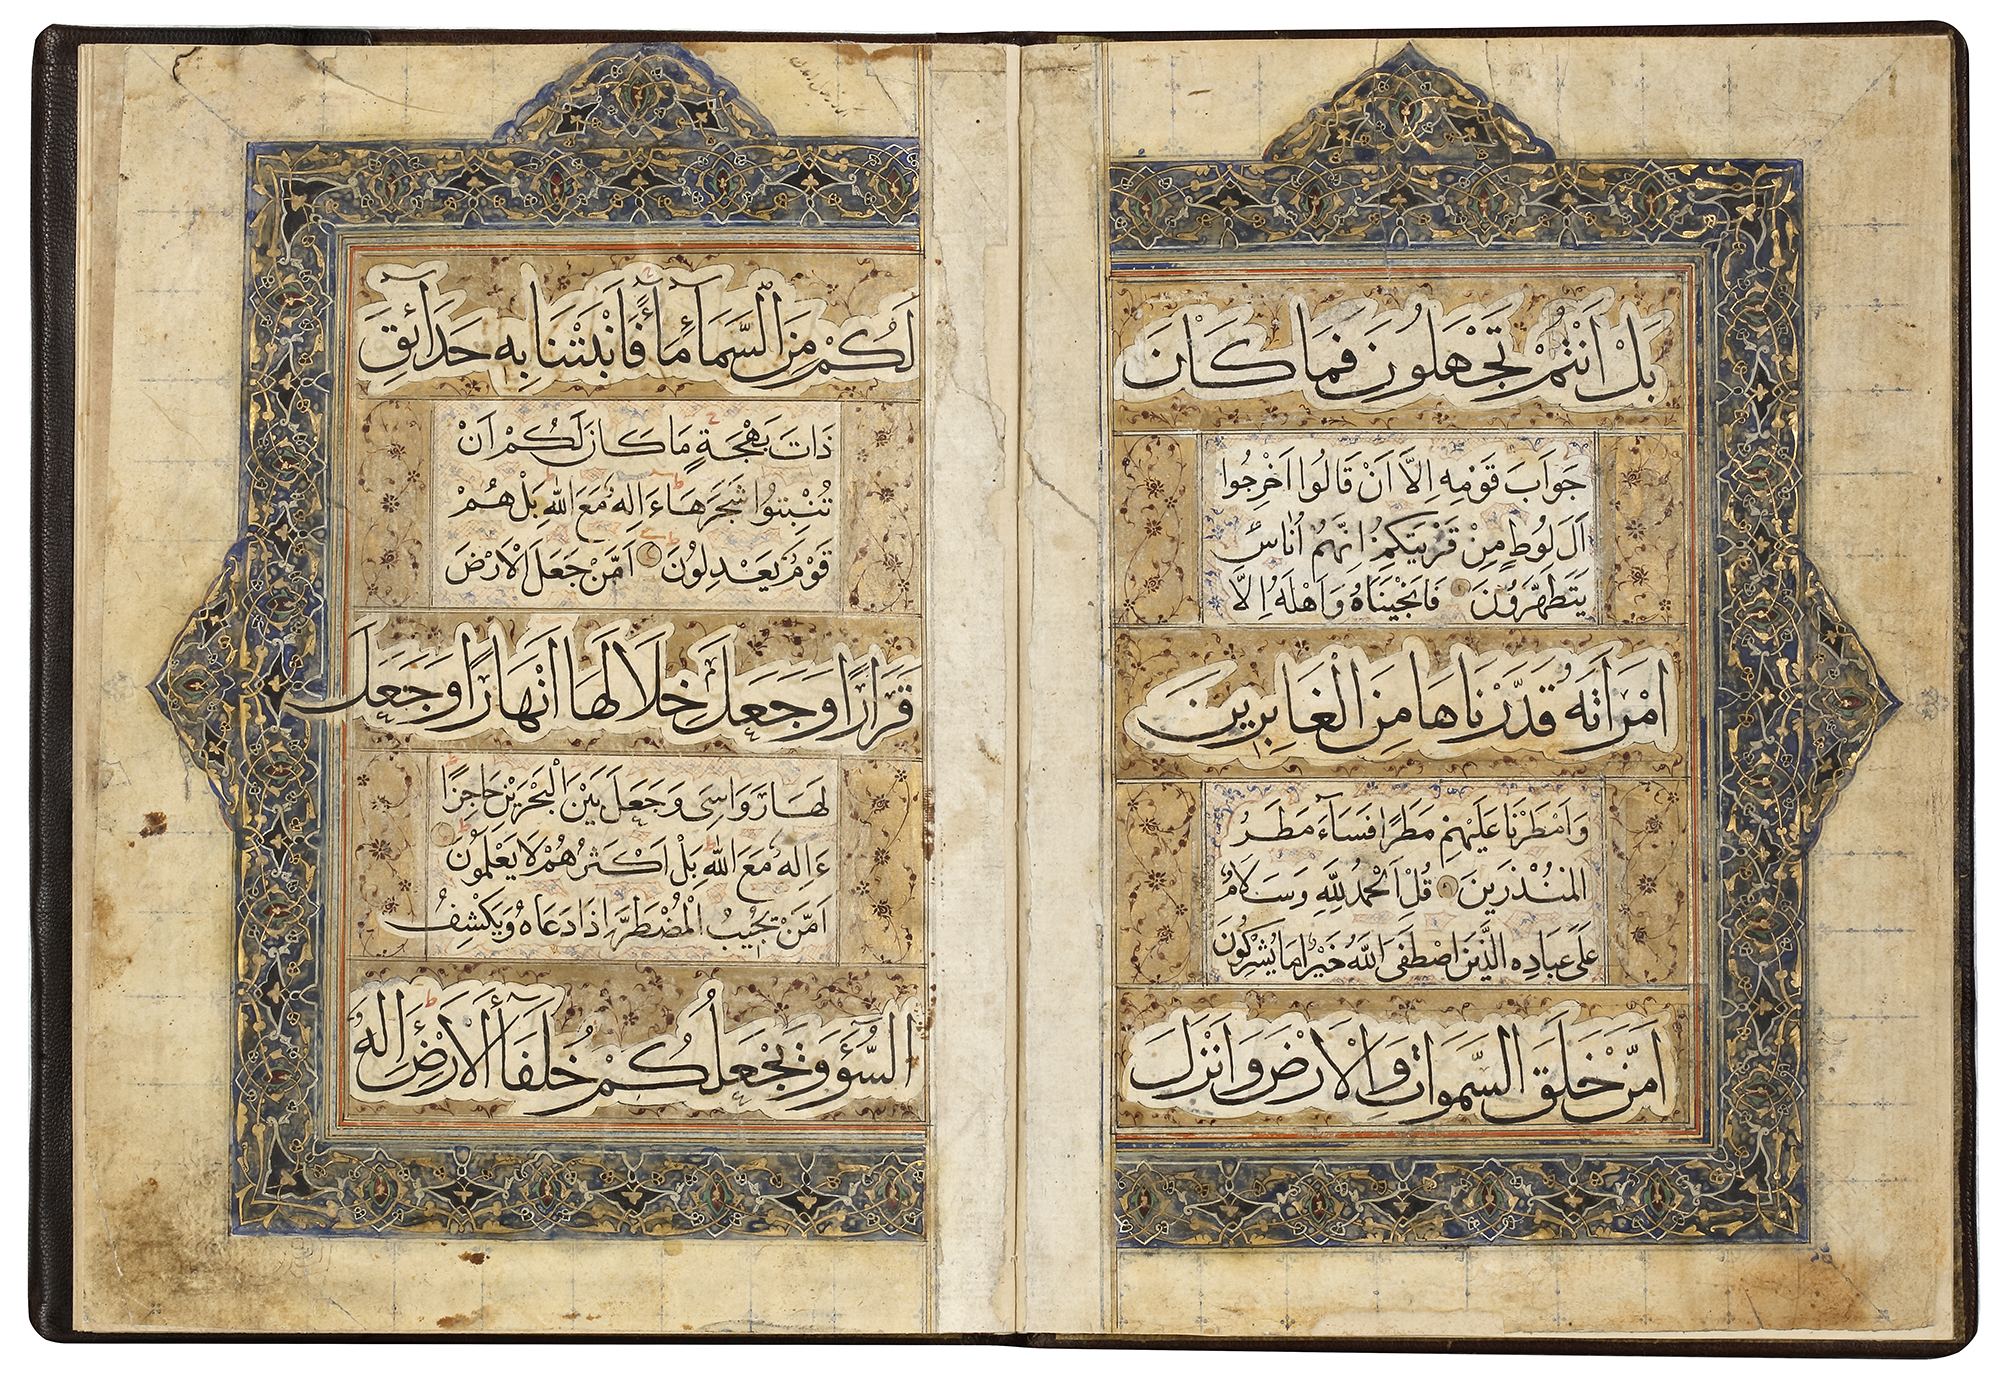 بَلْ اَنْتُمْ تَجْهَلُونَ فَمَا كَانَ
جَوَابَ قَوْمِهِ اِلَّا اَنْ قَالُوا اَخْرِجُوا
اٰلَ لُوطٍ مِنْ قَرْيَتِكُمْ اِنَّهُمْ اُنَاسٌ
يَتَطَهَّرُونَ فَاَنْجَيْنَاهُ وَاَهْلَهُ اِلَّا
امْرَاَتَهُ قَدَّرْنَاهَا مِنَ الْغَابِرِينَ
وَاَمْطَرْنَا عَلَيْهِمْ مَطَرًا فَسَاءَ مَطَرُ
الْمُنْذَرِينَ قُلِ الْحَمْدُ لِلّٰهِ وَسَلَامٌ
عَلَى عِبَادِهِ الَّذِينَ اصْطَفَى اللّٰهُ خَيْرٌ اَمَّا يُشْرِكُونَ
اَمَّنْ خَلَقَ السَّمَوَاتِ وَالْاَرْضَ وَاَنْزَلَ
لَكُمْ مِنَ السَّمَآءِ مَآءً فَاَنْبَتْنَا بِهِ حَدَآئِقَ
ذَاتَ بَهْجَةٍ مَا كَانَ لَكُمْ اَنْ
تُنْبِتُوا شَجَرَهَا ءَاِلَهٌ مَعَ اللّٰهِ بَلْ هُمْ
قَوْمٌ يَعْدِلُونَ اَمَّنْ جَعَلَ الْاَرْضَ
قَرَارًا وَجَعَلَ خِلَالَهَا اَنْهَارًا وَجَعَلَ
لَهَا رَوَاسِيَ وَجَعَلَ بَيْنَ الْبَحْرَيْنِ حَاجِزًا
ءَاِلَهٌ مَعَ اللّٰهِ بَلْ اَكْثَرُهُمْ لَا يَعْلَمُونَ
اَمَّنْ يُجِيبُ الْمُضْطَرَّ اِذَا دَعَاهُ وَيَكْشِفُ
السُّوٓءَ وَيَجْعَلُكُمْ خُلَفَآءَ الْاَرْضِ اِلَهٌ